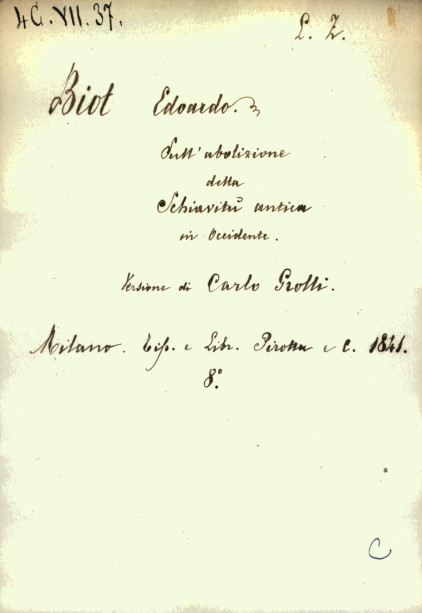 4C.VII.37.
L. Z.
Biot Edoardo.
Sull' abolizione
della
Schiavitù antica
in Occidente.
Versione di Carlo Grolli.
Milano. Tip. e Libr. Pirotta e C. 1841.
8.°
C